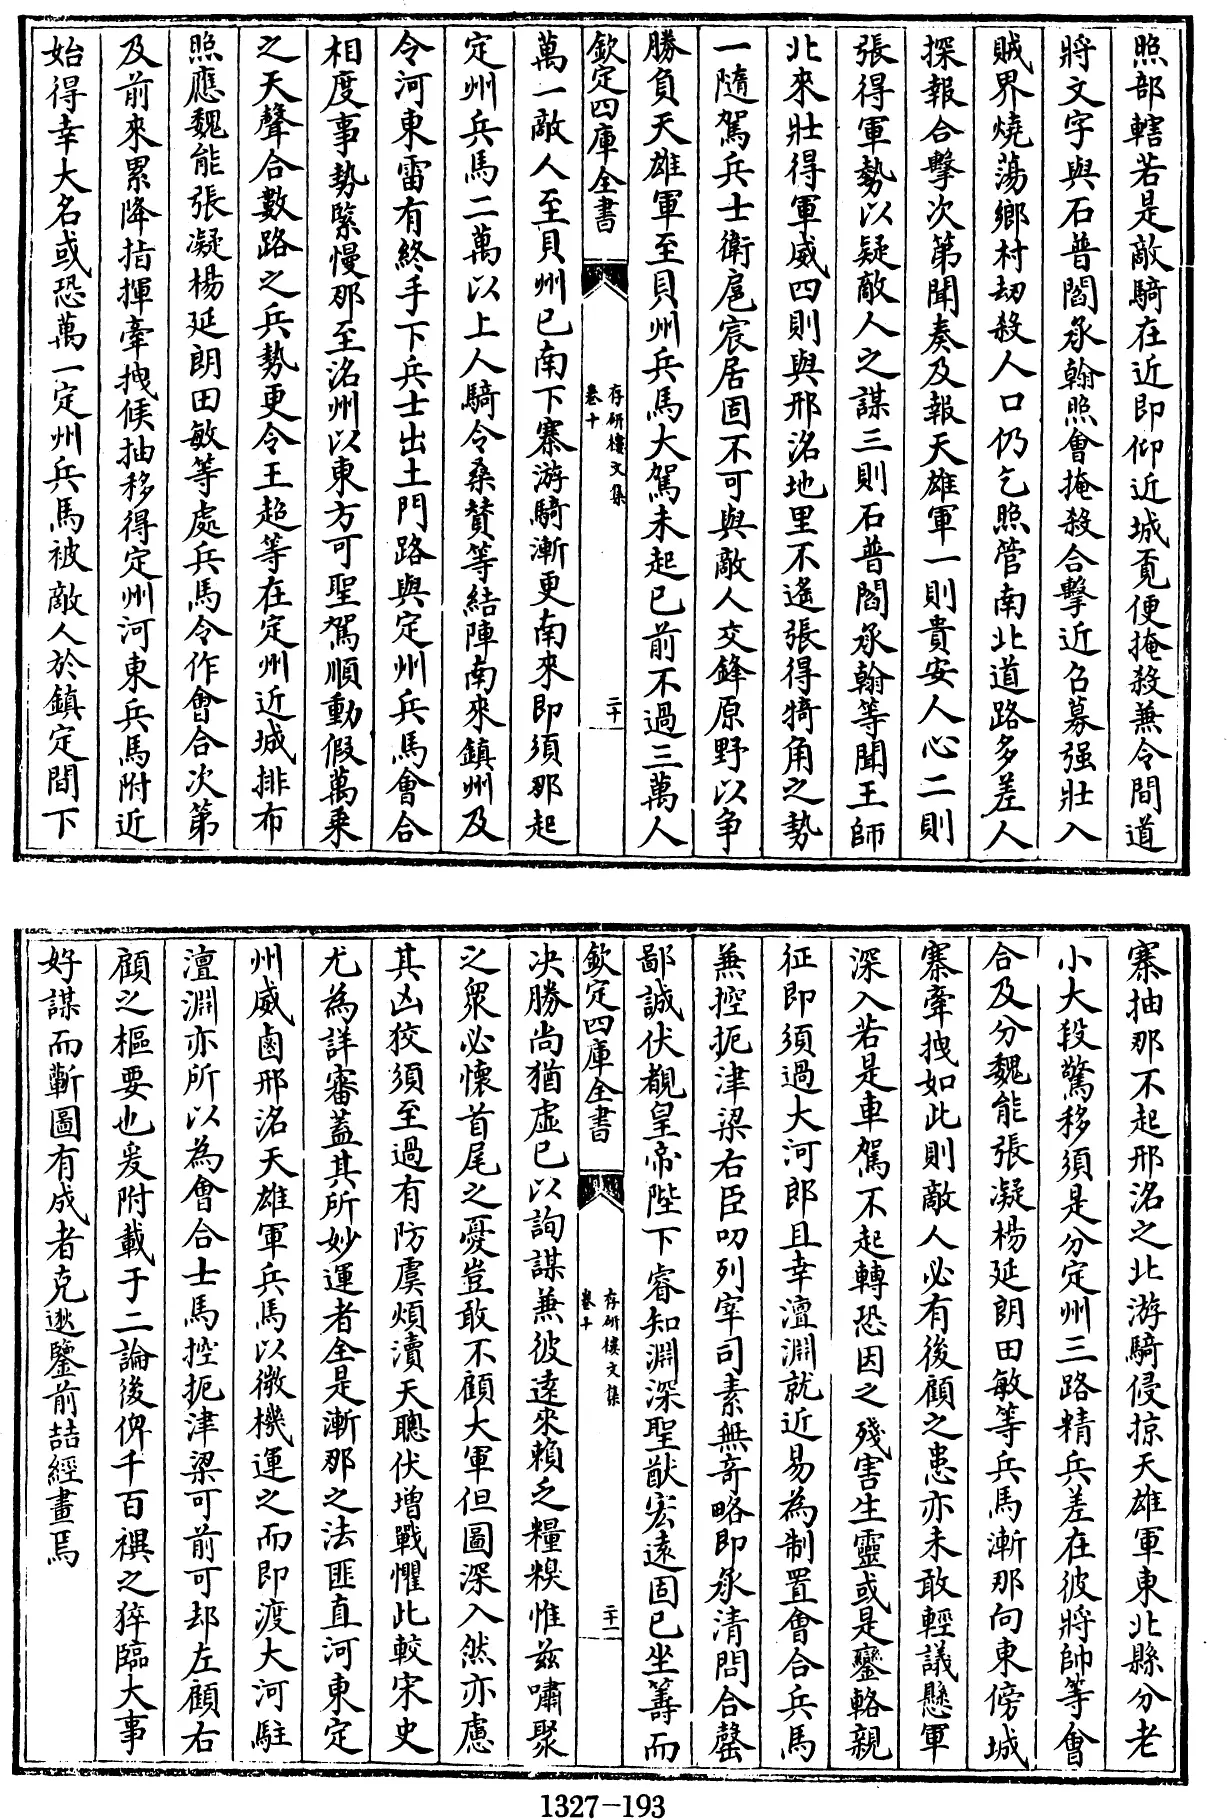 照部轄若是敵騎在近即仰近城覔便掩殺兼令間道
將文字與石普閻承翰照會掩殺合擊近召募强壯入
賊界燒蕩鄉村刼殺人口仍乞照管南北道路多差人
探報合擊次第聞奏及報天雄軍一則貴安人心二則
張得軍勢以疑敵人之謀三則石普閻承翰等聞王師
北來壯得軍威四則與邢洺地里不遙張得犄角之勢
一隨駕兵士衛扈宸居固不可與敵人交鋒原野以争
勝負天雄軍至貝州兵馬大駕未起已前不過三萬人
欽定四庫全書
存研樓文集
卷十
二十
萬一敵人至貝州已南下寨游騎漸更南來即須那起
定州兵馬二萬以上人騎令桑贊等結陣南來鎮州及
令河東雷有終手下兵士出土門路與定州兵馬會合
相度事勢緊慢那至洺州以東方可聖駕順動假萬乗
之天聲合數路之兵勢更令王超等在定州近城排布
照應魏能張凝楊延朗田敏等處兵馬令作會合次第
及前來累降指揮牽拽候抽移得定州河東兵馬附近
始得幸大名或恐萬一定州兵馬被敵人於鎮定間下
寨抽那不起邢洺之北游騎侵掠天雄軍東北縣分老
小大段驚移須是分定州三路精兵差在彼將帥等會
合及分魏能張凝楊延朗田敏等兵馬漸那向東傍城
寨牽拽如此則敵人必有後顧之患亦未敢輕議懸軍
深入若是車駕不起轉恐因之殘害生靈或是鑾輅親
征即須過大河郎且幸澶淵就近易為制置會合兵馬
兼控扼津梁右臣叨列宰司素無竒略即承清問合罄
鄙誠伏覩皇帝陛下睿知淵深聖猷宏遠固已坐籌而
欽定四庫全書
存研樓文集
卷十
二十一
决勝尚猶虛已以詢謀兼彼遠來賴乏糧糗惟兹嘯聚
之衆必懷首尾之憂豈敢不顧大軍但圖深入然亦慮
其凶狡須至過有防虞煩瀆天聰伏增戰懼此較宋史
尤為詳審蓋其所妙運者全是漸那之法匪直河東定
州威鹵邢洺天雄軍兵馬以微機運之而即渡大河駐
澶淵亦所以為會合士馬控扼津梁可前可却左顧右
顧之樞要也爰附載于二論後俾千百禩之猝臨大事
好謀而蘄圖有成者克逖鑒前喆經畫焉
1327-193